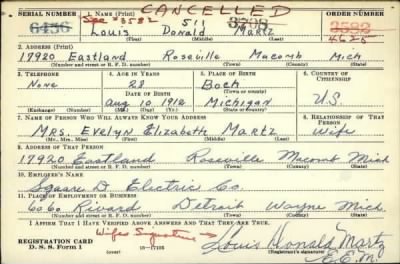 CANCELLED
SERIAL NUMBER 1. NAME (Print) ORDER NUMBER
See #3582 511
Louis Donald Martz
2. ADDRESS (Print)
17920 Eastland Roseville Macomb Mich
(Number and street or R. F. D. number) (Town) (County) (State)
3. TELEPHONE 4. AGE IN YEARS 5. PLACE OF BIRTH 6. COUNTRY OF CITIZENSHIP
None 28
DATE OF BIRTH (Town or county)
Aug 10 1912 Michigan U.S.
(Exchange) (Number) (Mo.) (Day) (Yr.) (State or country)
7. NAME OF PERSON WHO WILL ALWAYS KNOW YOUR ADDRESS 8. RELATIONSHIP OF THAT PERSON
Mrs. Evelyn Elizabeth Martz Wife
(Mr., Mrs., Miss) (First) (Middle) (Last)
9. ADDRESS OF THAT PERSON
17920 Eastland Roseville Macomb Mich
(Number and street or R. F. D. number) (Town) (County) (State)
10. EMPLOYER'S NAME
Square D. Electric Co.
11. PLACE OF EMPLOYMENT OR BUSINESS
6060 Rivard Detroit Wayne Mich.
(Number and street or R. F. D. number) (Town) (County) (State)
I AFFIRM THAT I HAVE VERIFIED ABOVE ANSWERS AND THAT THEY ARE TRUE.
Wife's Signature
REGISTRATION CARD
D. S. S. Form 1 (over) Louis Donald Martz
(Registrant's signature)
E.E.M.